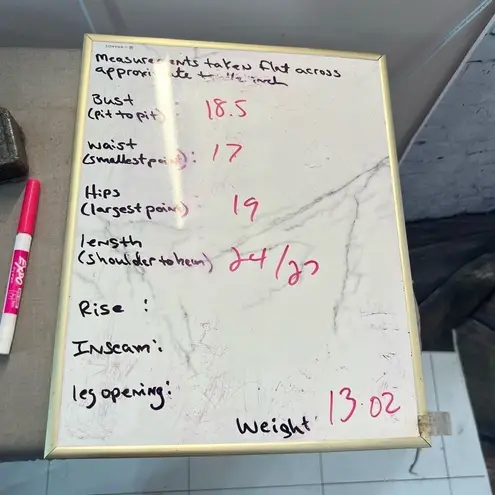 Measurements taken flat across
approximate to the inch
Bust
(pit to pit) : 18.5
Waist
(smallest point) : 17
Hips
(largest point) 19
length
(shoulder to hem) 24/27
Rise :
Inseam :
leg opening :
Weight : 13.02
EXPO